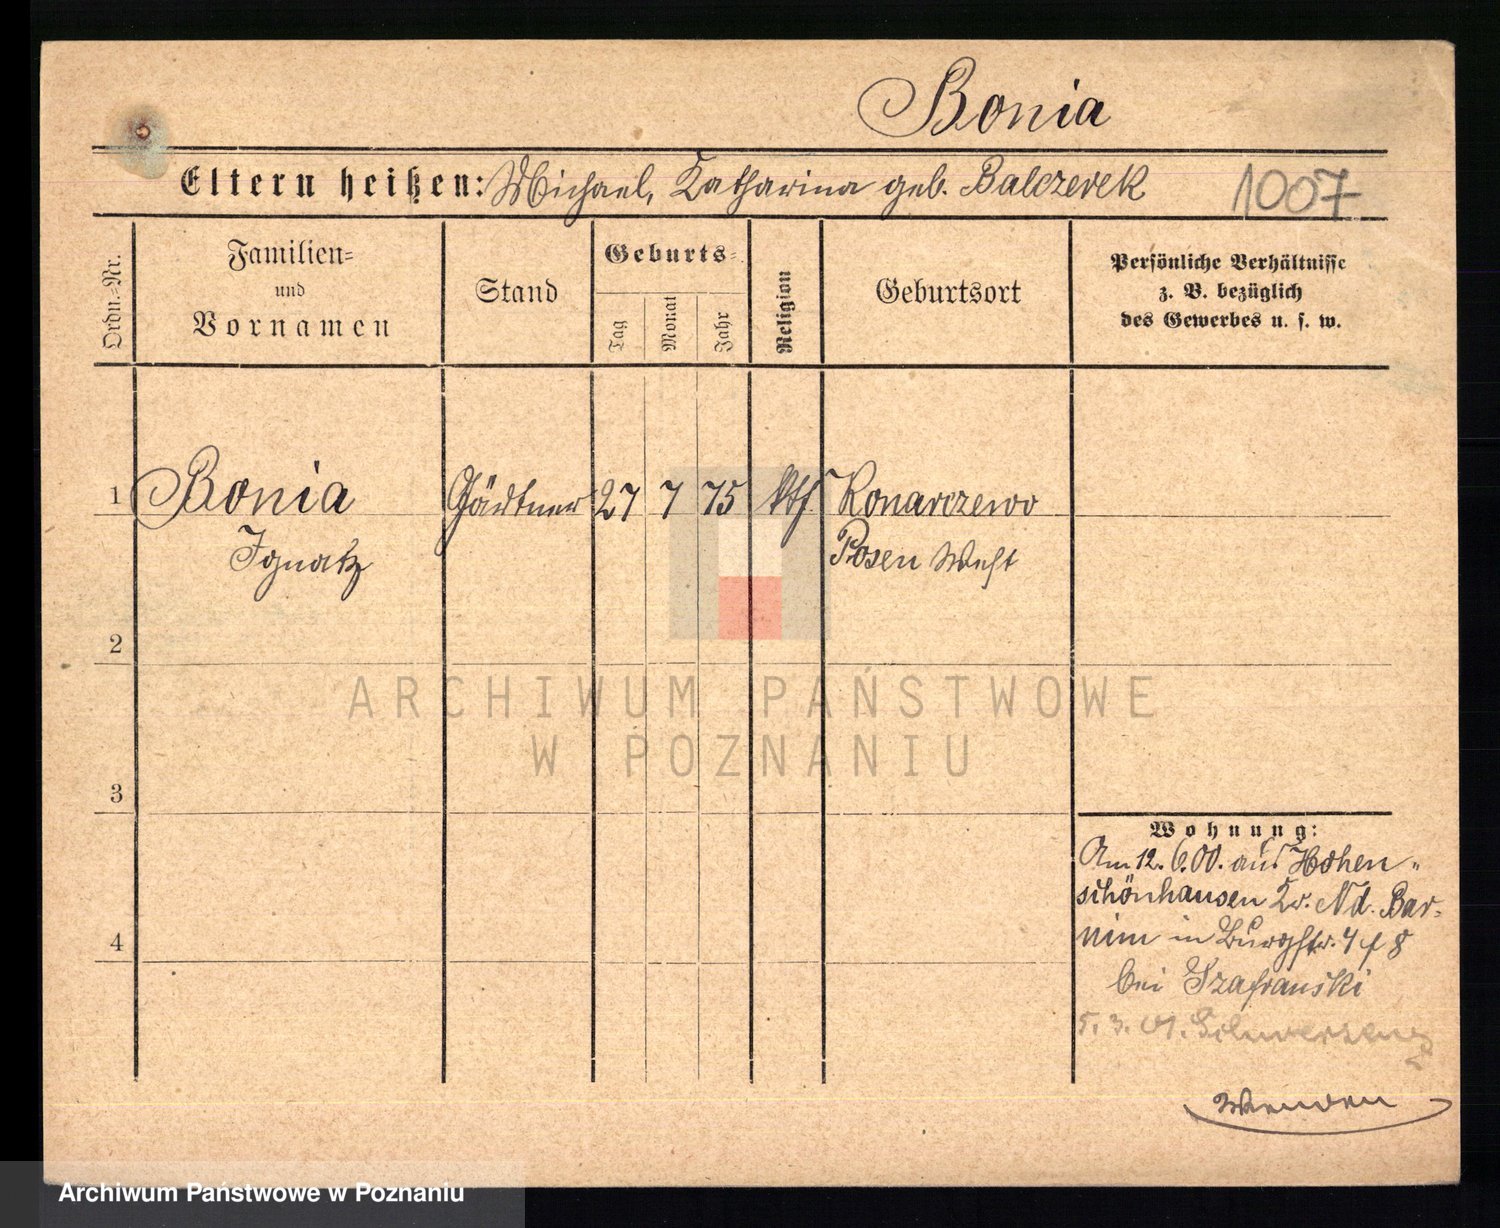 Bonia
Eltern heißen: Michael, Katharina geb. Balczerek 1007
Ordn.-Nr.
Familien-
und
Vornamen
Stand
Geburts-
Tag
Monat
Jahr
Religion
Geburtsort
Persönliche Verhältnisse
z. B. bezüglich
des Gewerbes u. s. w.
1 Bonia Gärtner 27 7 75 kth. Konarczewo
Ignatz Posen West
2
ARCHIWUM PAŃSTWOWE
W POZNANIU
3
Wohnung:
Am 12. 6. 00. aus Hohen-
schönhausen Kr. Nd. Bar-
4
nim in Burgstr. 7/8
bei Szafranski
5. 3. 01. Schwersenz
Wenden
Archiwum Państwowe w Poznaniu